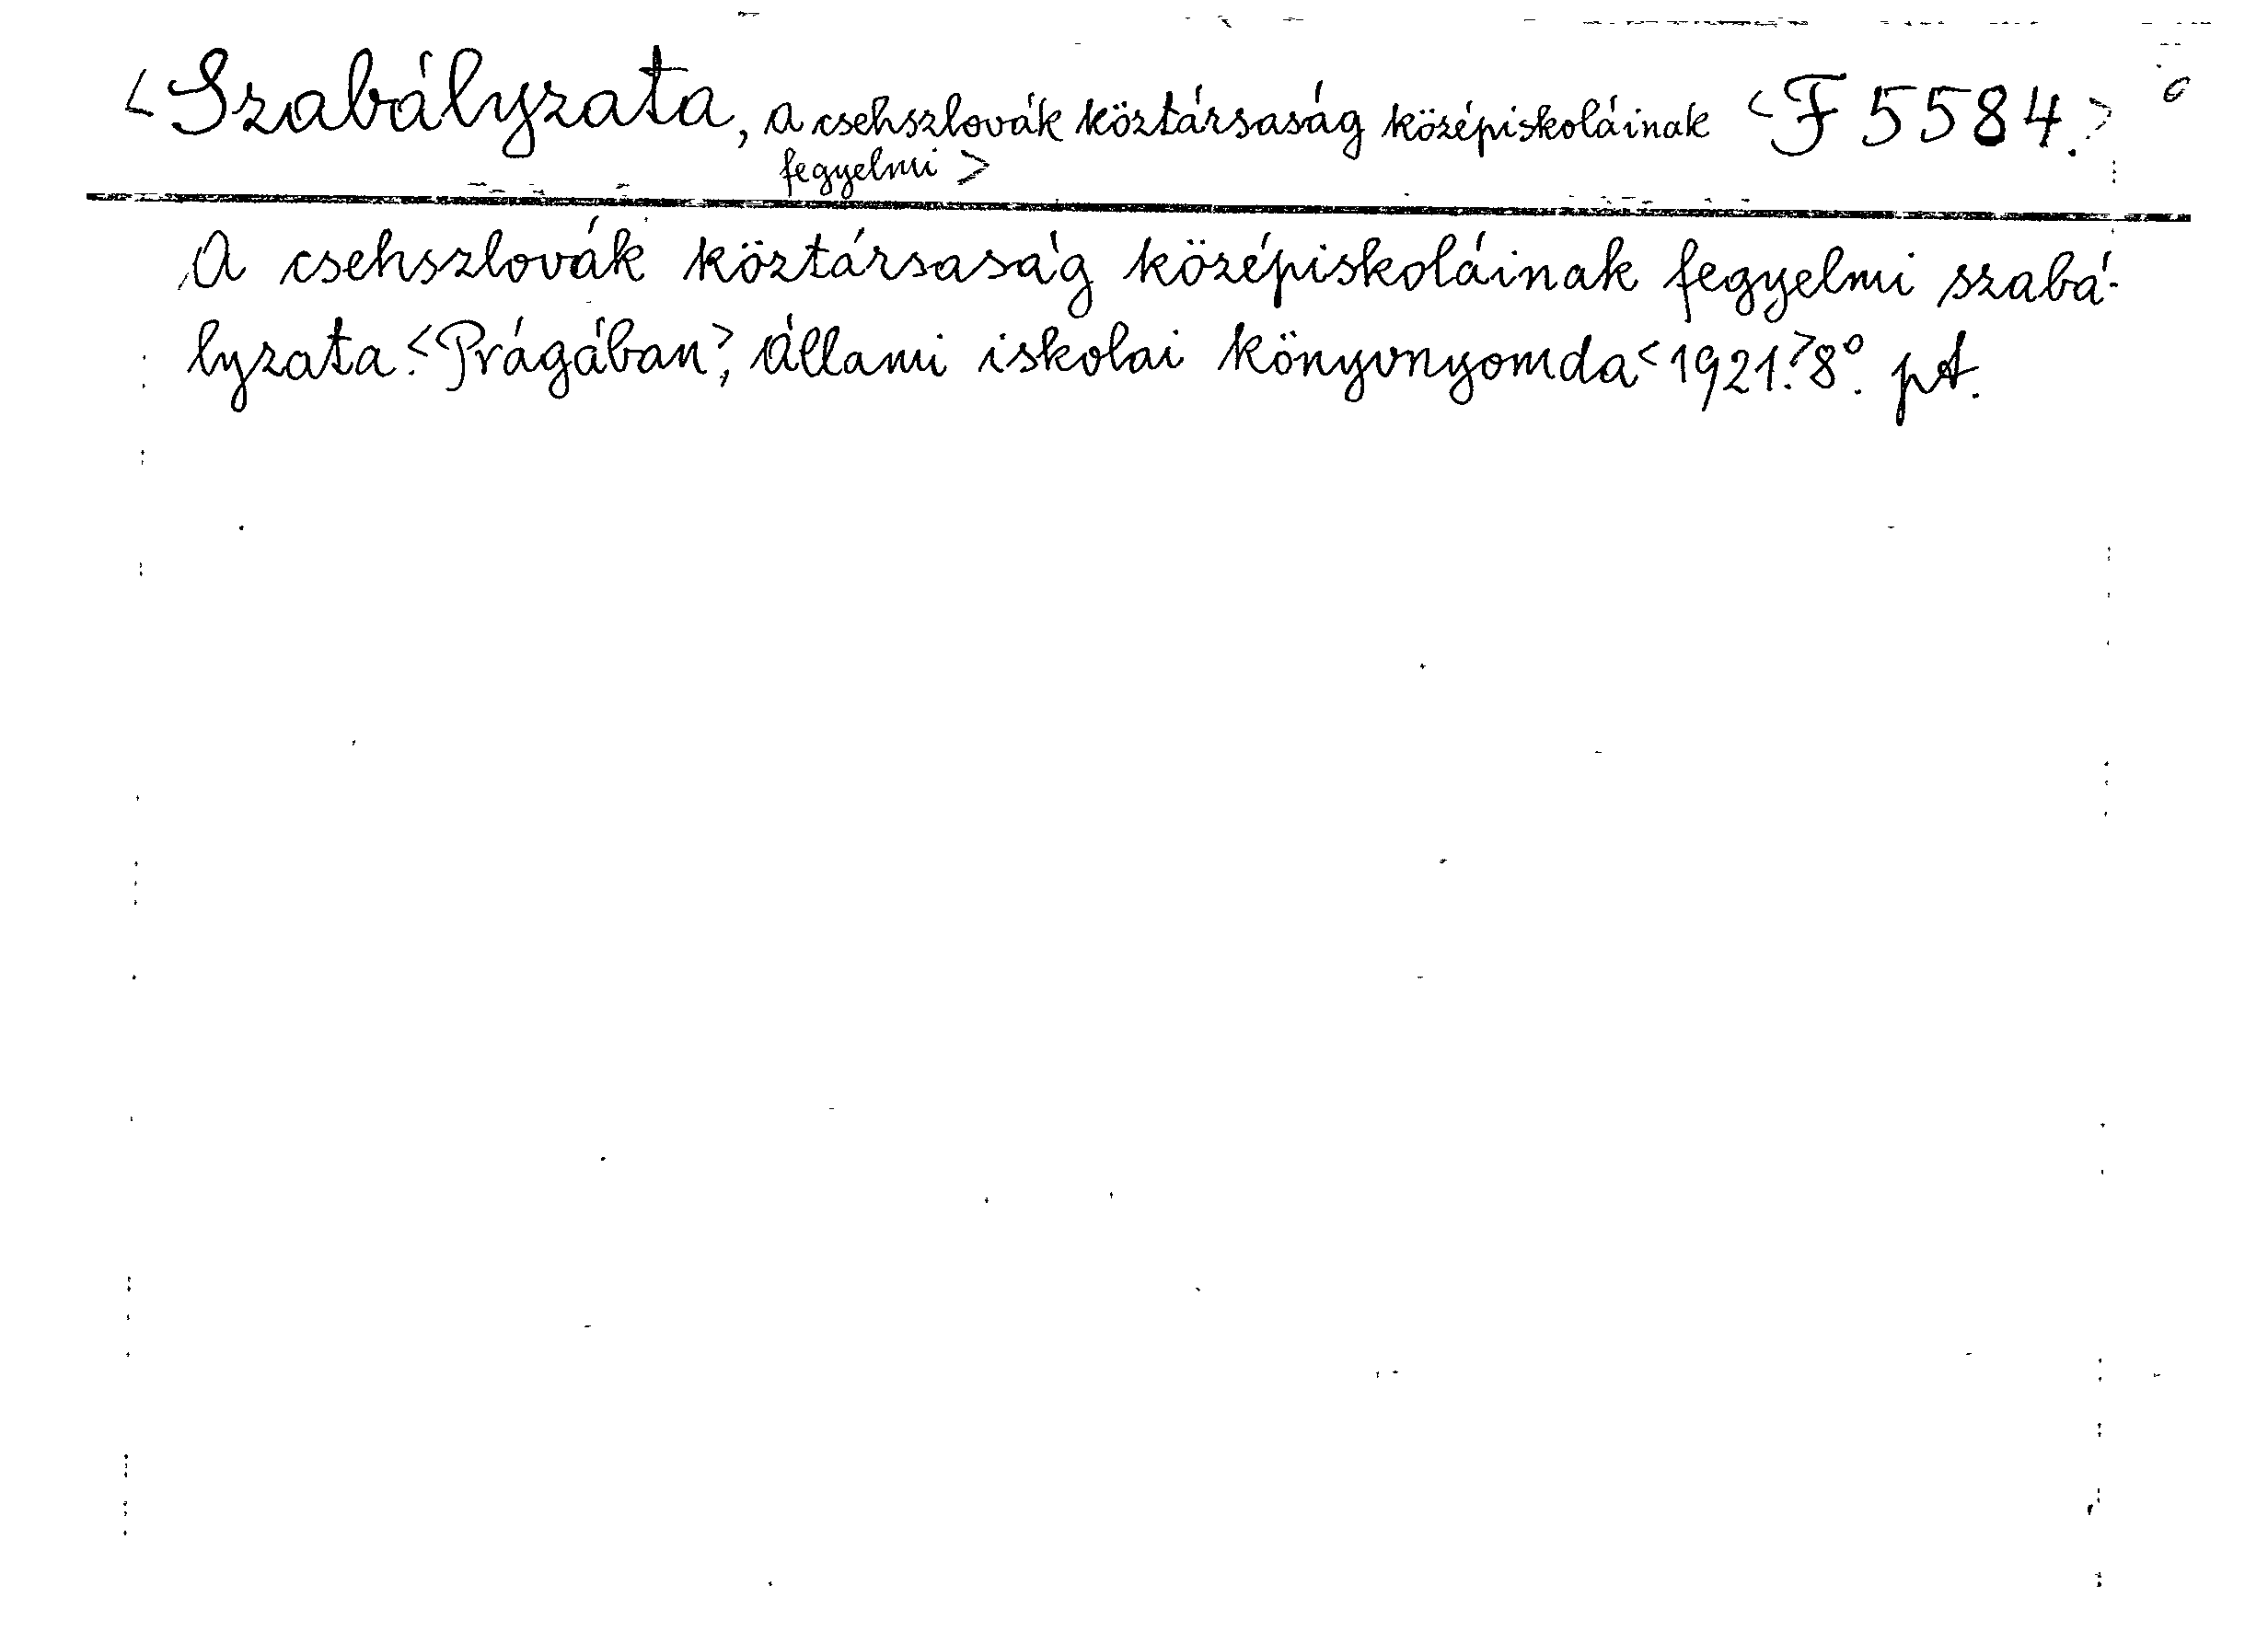 <Szabályzata, a csehszlovák köztársaság középiskoláinak <F 5584.>
fegyelmi>
A csehszlovák köztársaság középiskoláinak fegyelmi szabá-
lyzata.<Prágában>, Állami iskolai könyvnyomda<1921.>8°. pt.